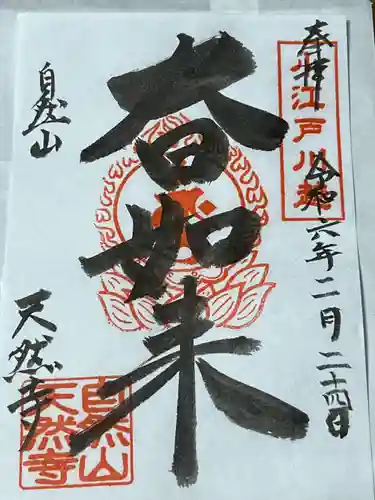 奉拝
小江戸川越
令和六年二月二十四日
大日如来
自然山
天然寺
自然山
天然寺